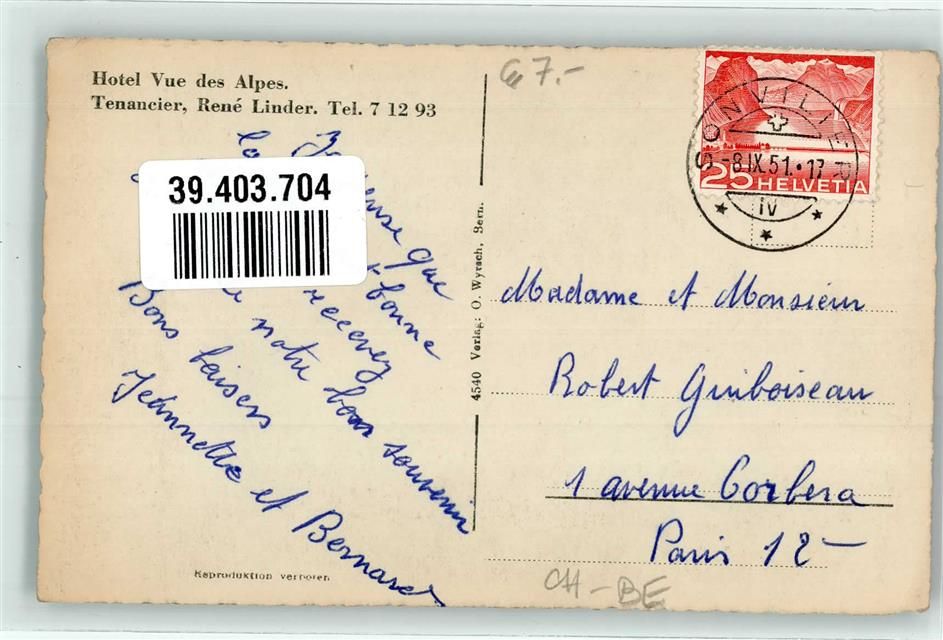 Hotel Vue des Alpes.
Tenancier, René Linder. Tel. 7 12 93
39.403.704
pense que
la
bonne
recevez
notre bon souvenir
Bons baisers
Jeannette et Bernard
Reproduktion verboten
4540 Verlag: O. Wyrsch, Bern.
7.-
SONVILIER
-8.IX.51.•17
IV
25 HELVETIA
Madame et Monsieur
Robert Guiboiseau
1 avenue Corbera
Paris 12 —
CH - BE